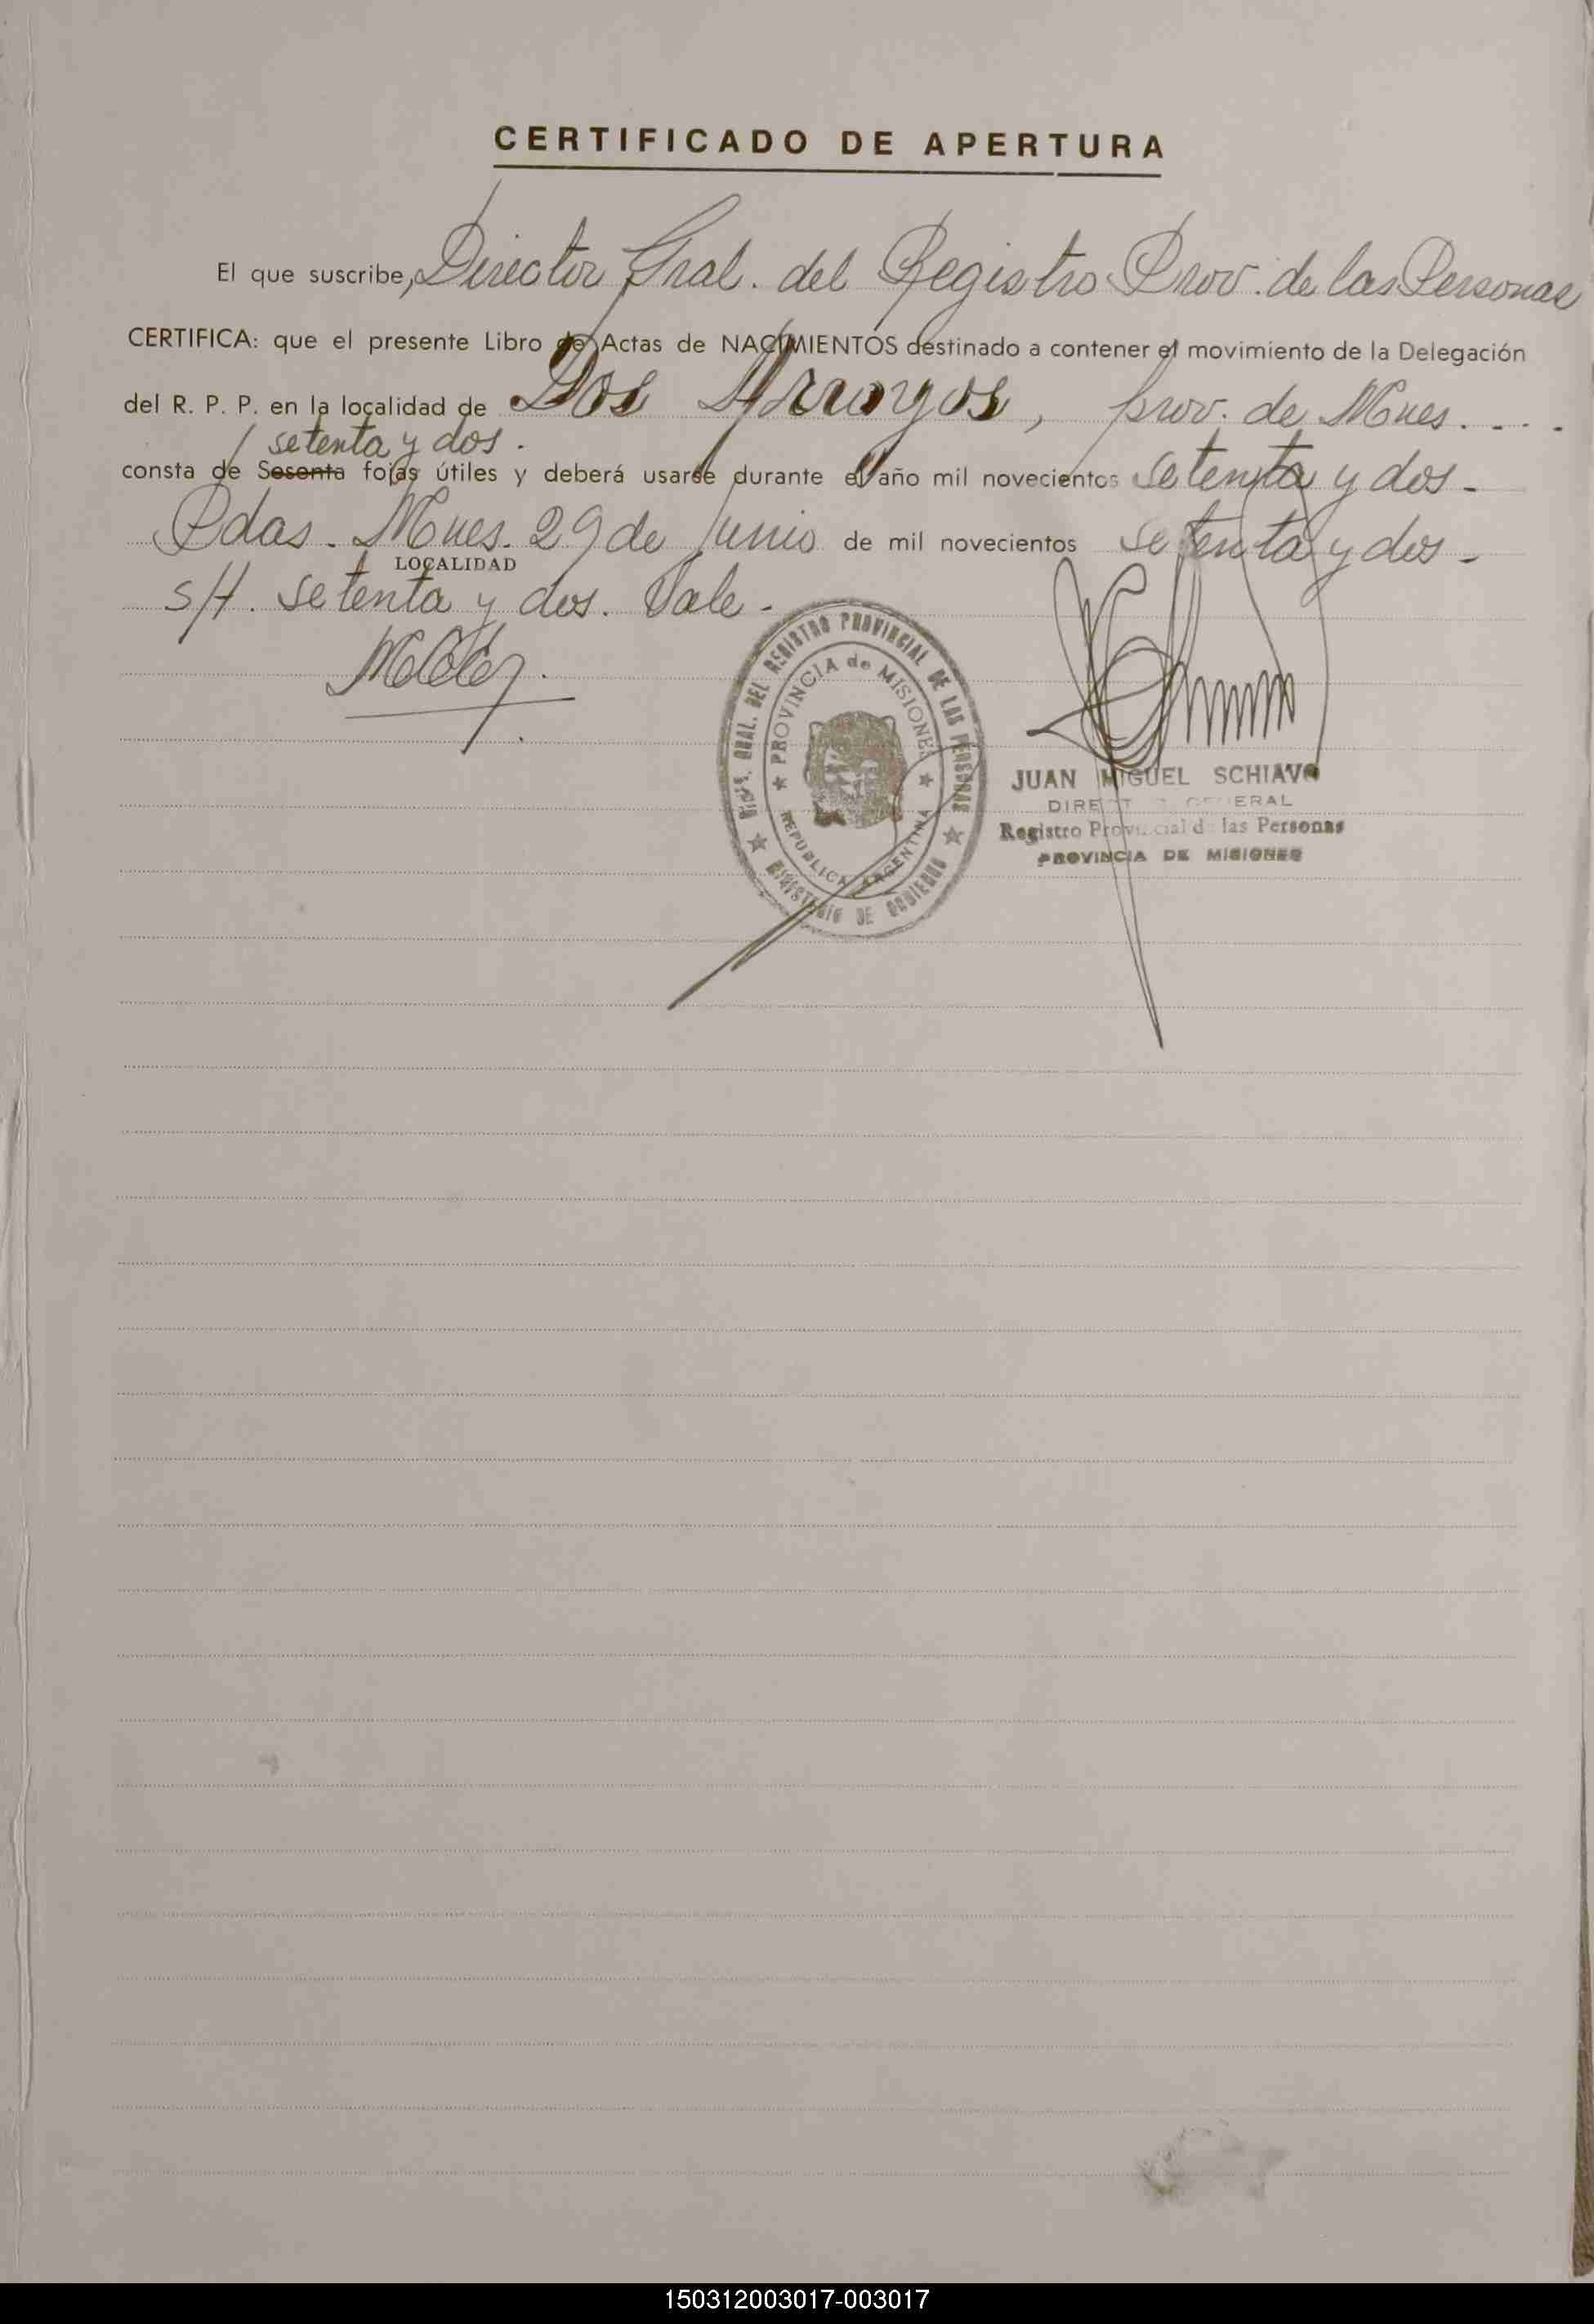 CERTIFICADO DE APERTURA
El que suscribe, Director Gral. del Registro Prov. de las Personas
CERTIFICA: que el presente Libro de Actas de NACIMIENTOS destinado a contener el movimiento de la Delegación
del R. P. P. en la localidad de Dos Arroyos, prov. de Mnes. . . .
setenta y dos.
consta de Sesenta fojas útiles y deberá usarse durante el año mil novecientos setenta y dos -
Pdas. Mnes. 29 de Junio de mil novecientos setenta y dos -
LOCALIDAD
S/A. setenta y dos. Vale -
REGISTRO PROVINCIAL DE LAS PERSONAS
GRAL. DEL
PROVINCIA de MISIONES
REPUBLICA ARGENTINA
MINISTERIO DE GOBIERNO
JUAN MIGUEL SCHIAVO
DIRECTOR GENERAL
Registro Provincial de las Personas
PROVINCIA DE MISIONES
150312003017-003017